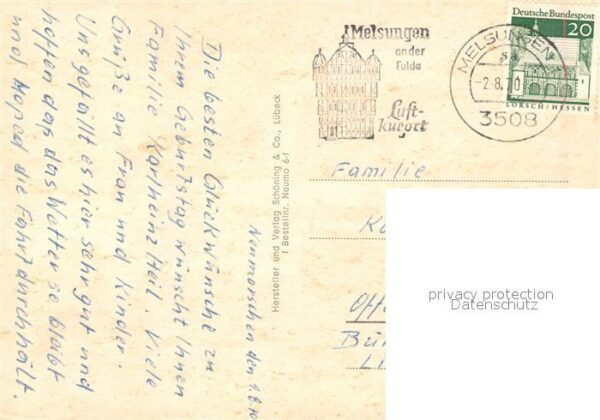 Neumorschen den 1.8.70
Die besten Glückwünsche zu
Ihrem Geburtstag wünscht Ihnen
Familie Karlheinz Heil. Viele
Grüße an Frau und Kinder.
Uns gefällt es hier sehr gut und
hoffen das das Wetter so bleibt
und Moped die Fahrt durchhält.
Hersteller und Verlag Schöning & Co., Lübeck
f Bestellnr. Neumo 6-f
Melsungen
an der
Fulda
Luft-
kurort
MELSUNGEN
-2.8.70
3508
Deutsche Bundespost
20
LORSCH/HESSEN
Familie
privacy protection
Datenschutz